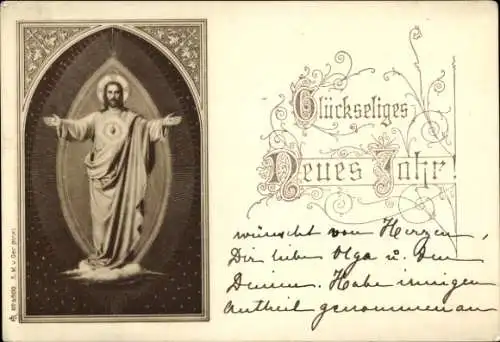 Glückseliges
Neues Jahr!
wünscht von Herzen,
Dir liebe Olga u. den
Deinen. Habe innigen
Antheil genommen an